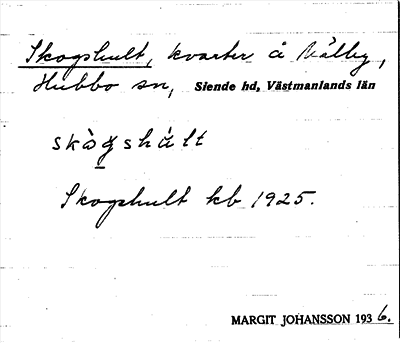 Skogshult, kvarter å Målby,
Hubbo sn, Siende hd, Västmanlands län
skògshålt
Skogshult kb 1925.
MARGIT JOHANSSON 1936.